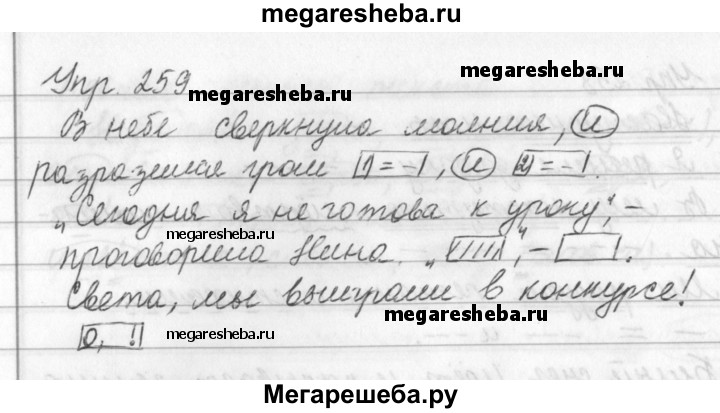 megaresheba.ru
Упр. 259
megaresheba.ru
megaresheba.ru
В небе сверкнула молния, и
разразился гром [1 = –], и [2 = –].
„Сегодня я не готова к уроку", –
megaresheba.ru
проговорила Нина. „[////]", – [ ].
Света, мы выиграли в конкурсе!
megaresheba.ru
[О, !]
megaresheba.ru
Мегарешеба.ру